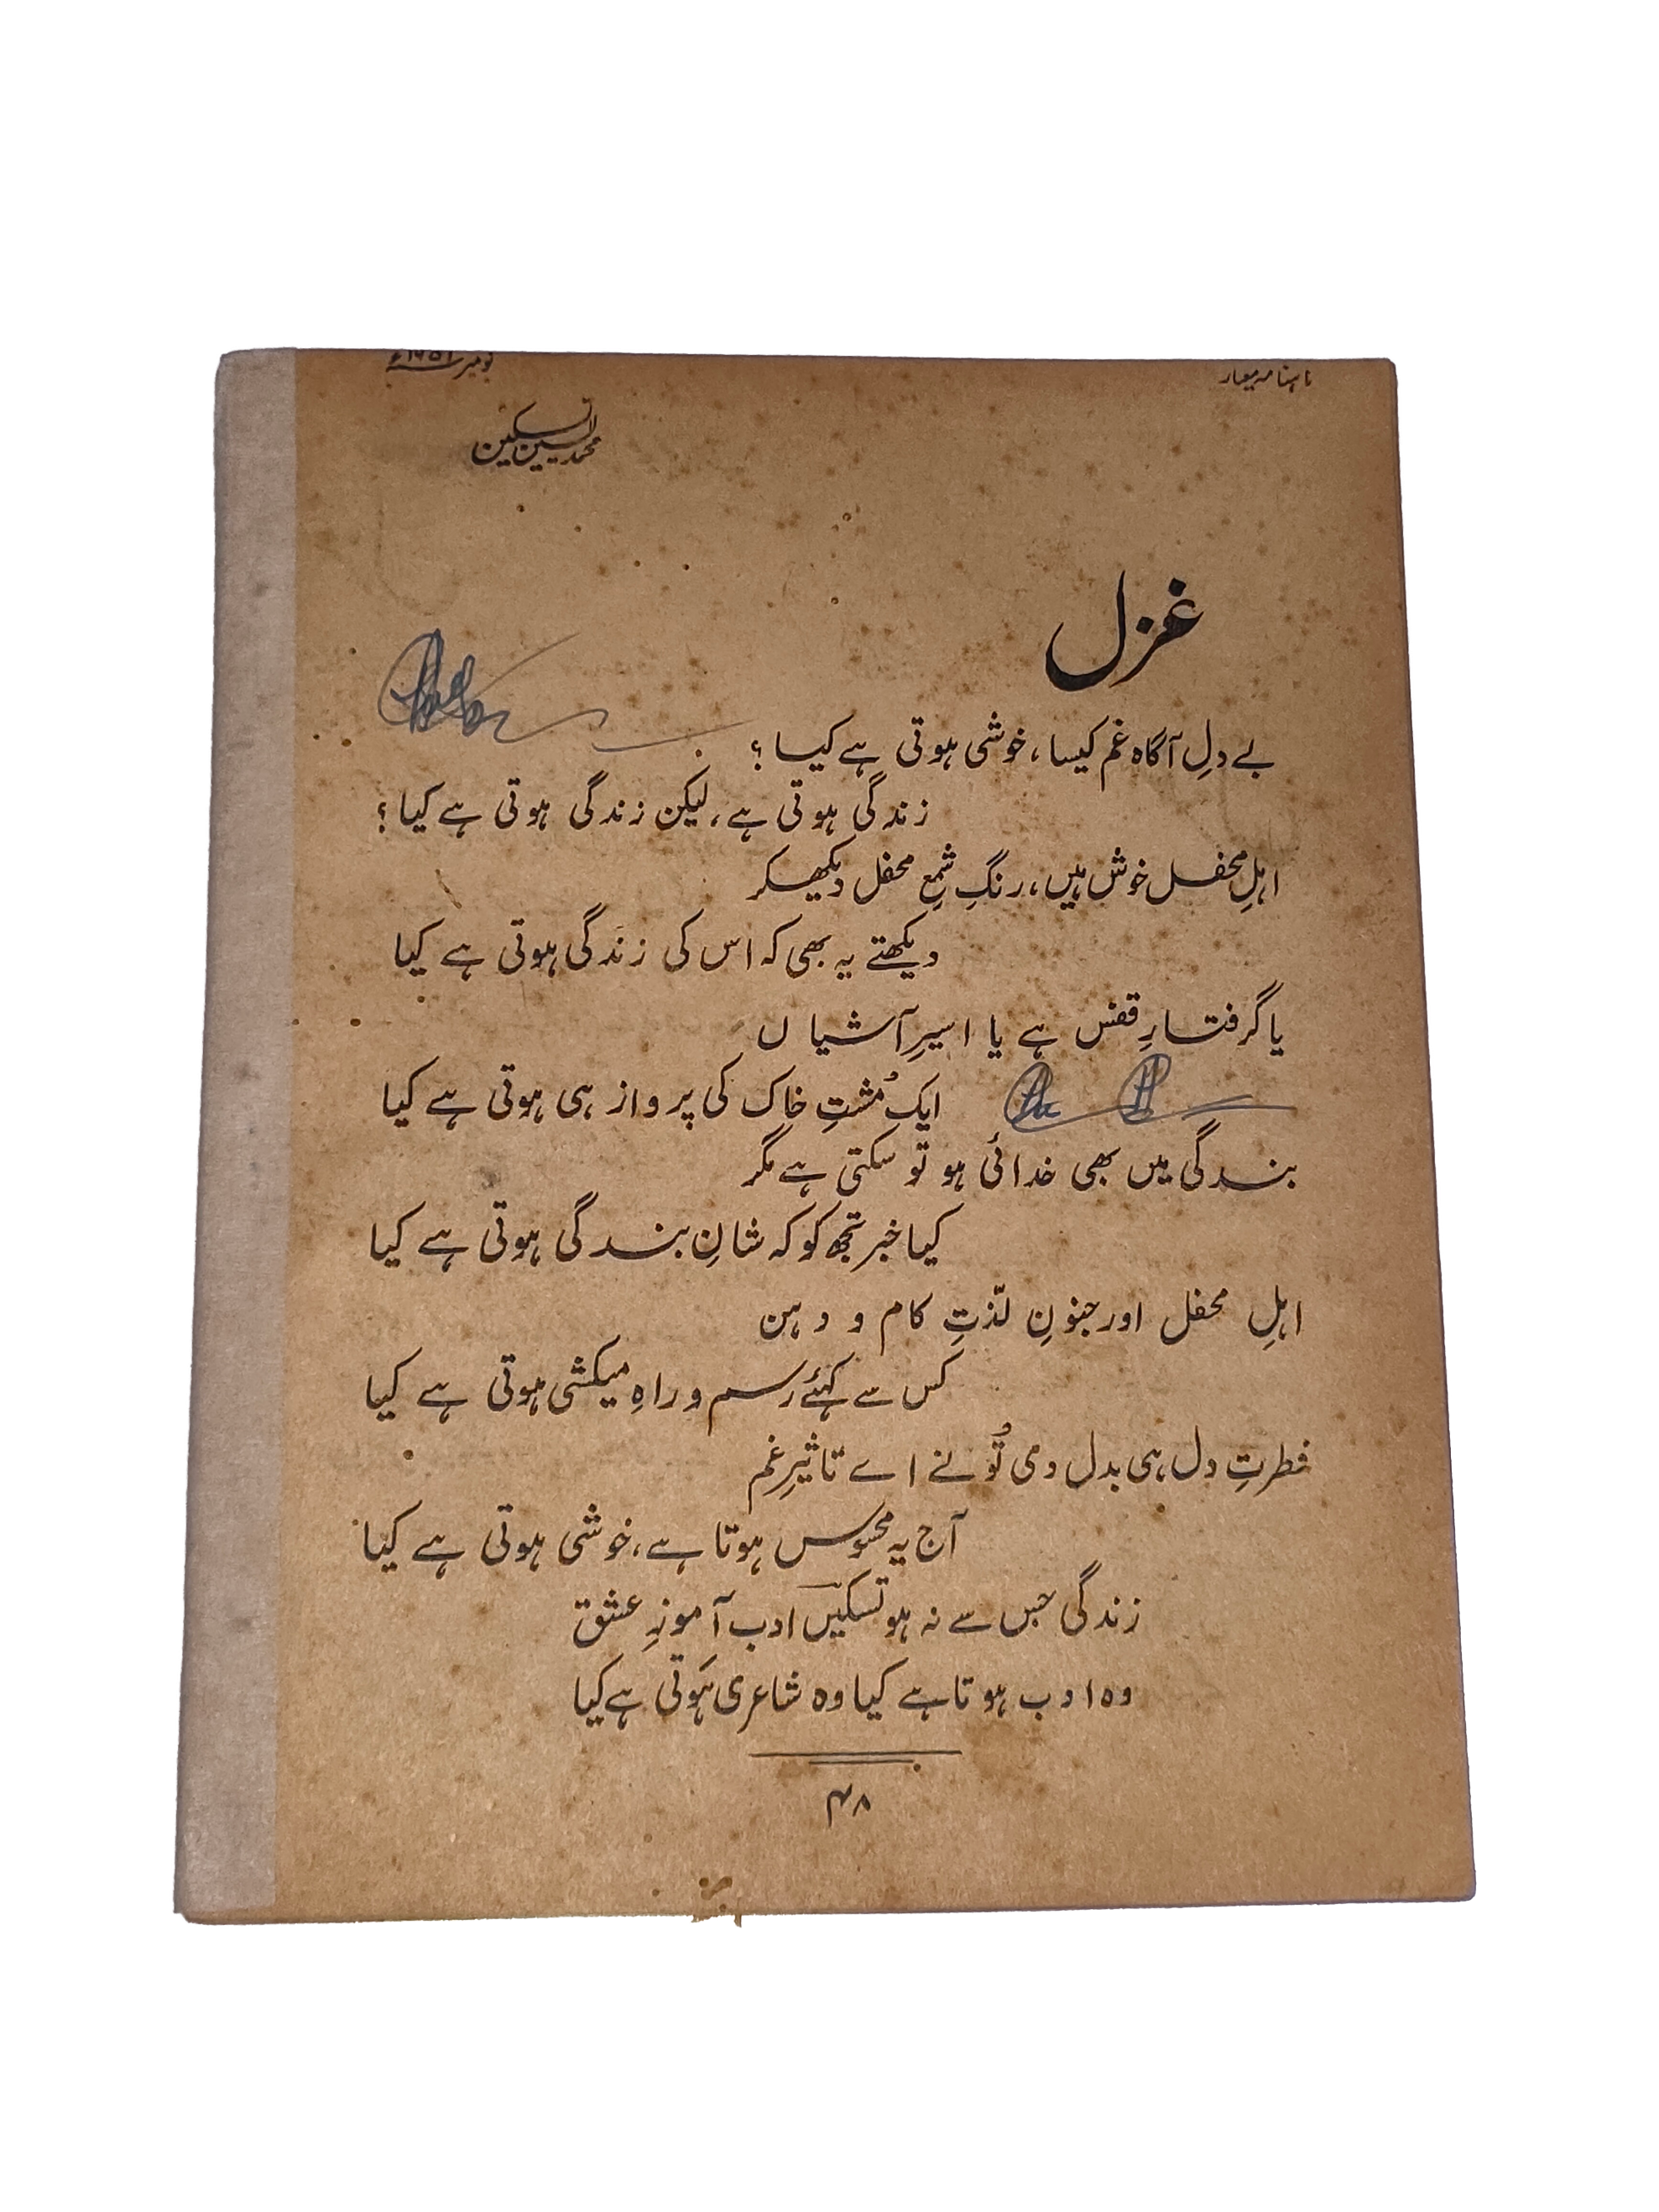 ماہنامہ معیار
نومبر ۱۹۵۱ء
محمد یٰسین تسکین
غزل
بے دلِ آگاہ غم کیسا، خوشی ہوتی ہے کیا ؟
زندگی ہوتی ہے، لیکن زندگی ہوتی ہے کیا ؟
اہلِ محفل خوش ہیں، رنگِ شمعِ محفل دیکھکر
دیکھتے یہ بھی کہ اس کی زندگی ہوتی ہے کیا
یا گرفتارِ قفس ہے یا اسیرِ آشیاں
ایک مُشتِ خاک کی پرواز ہی ہوتی ہے کیا
بندگی میں بھی خدائی ہو تو سکتی ہے مگر
کیا خبر تجھ کو کہ شانِ بندگی ہوتی ہے کیا
اہلِ محفل اور جنونِ لذّتِ کام و دہن
کس سے کہئے رسم و راہِ میکشی ہوتی ہے کیا
فطرتِ دل ہی بدل دی تُو نے اے تاثیرِ غم
آج یہ محسوس ہوتا ہے، خوشی ہوتی ہے کیا
زندگی جس سے نہ ہو تسکیںؔ ادب آموزِ عشق
وہ ادب ہوتا ہے کیا وہ شاعری ہوتی ہے کیا
۴۸